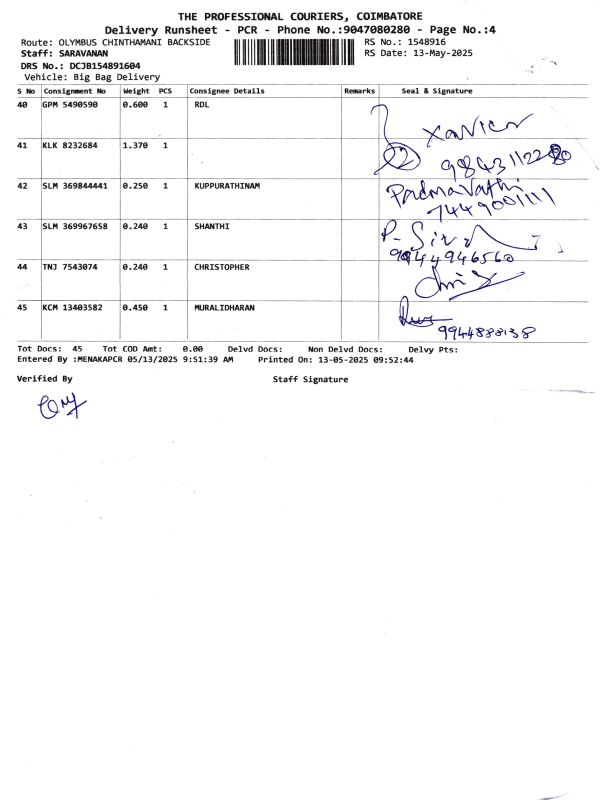 THE PROFESSIONAL COURIERS, COIMBATORE
Delivery Runsheet - PCR - Phone No.:9047080280 - Page No.:4
Route: OLYMBUS CHINTHAMANI BACKSIDE RS No.: 1548916
Staff: SARAVANAN RS Date: 13-May-2025
DRS No.: DCJB154891604
Vehicle: Big Bag Delivery
S No Consignment No Weight PCS Consignee Details Remarks Seal & Signature
40 GPM 5490590 0.600 1 RDL
Xavier
41 KLK 8232684 1.370 1
42 SLM 369844441 0.250 1 KUPPURATHINAM Padmavathi
7449001111
43 SLM 369967658 0.240 1 SHANTHI
9944946560
44 TNJ 7543074 0.240 1 CHRISTOPHER
45 KCM 13403582 0.450 1 MURALIDHARAN
9944888138
Tot Docs: 45 Tot COD Amt: 0.00 Delvd Docs: Non Delvd Docs: Delvy Pts:
Entered By :MENAKAPCR 05/13/2025 9:51:39 AM Printed On: 13-05-2025 09:52:44
Verified By Staff Signature